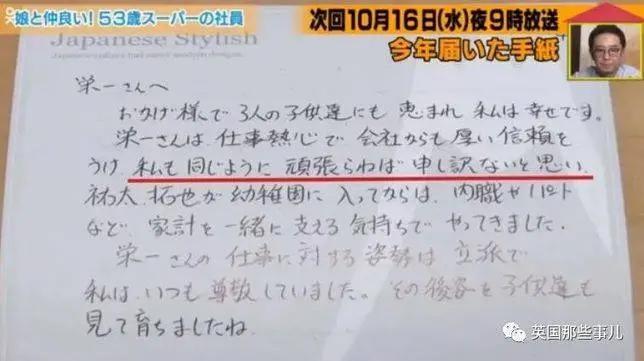 娘と仲良い!53歳スーパーの社員
次回10月16日(水)夜9時放送
今年届いた手紙
Japanese Stylish
栄一さんへ
おかげ様で 3人の子供達にも 恵まれ 私は幸せです。
栄一さんは 仕事熱心で 会社からも 厚い信頼を
うけ 私も同じように 頑張らねば 申し訳ないと思い
祐太 拓也が 幼稚園に 入ってからは、内職やパート
など、家計を一緒に支える気持ちで やってきました.
栄一さんの 仕事に対する姿勢は 立派で
私は、いつも尊敬していました。その後姿を子供達も
見て育ちましたね.
英国那些事儿